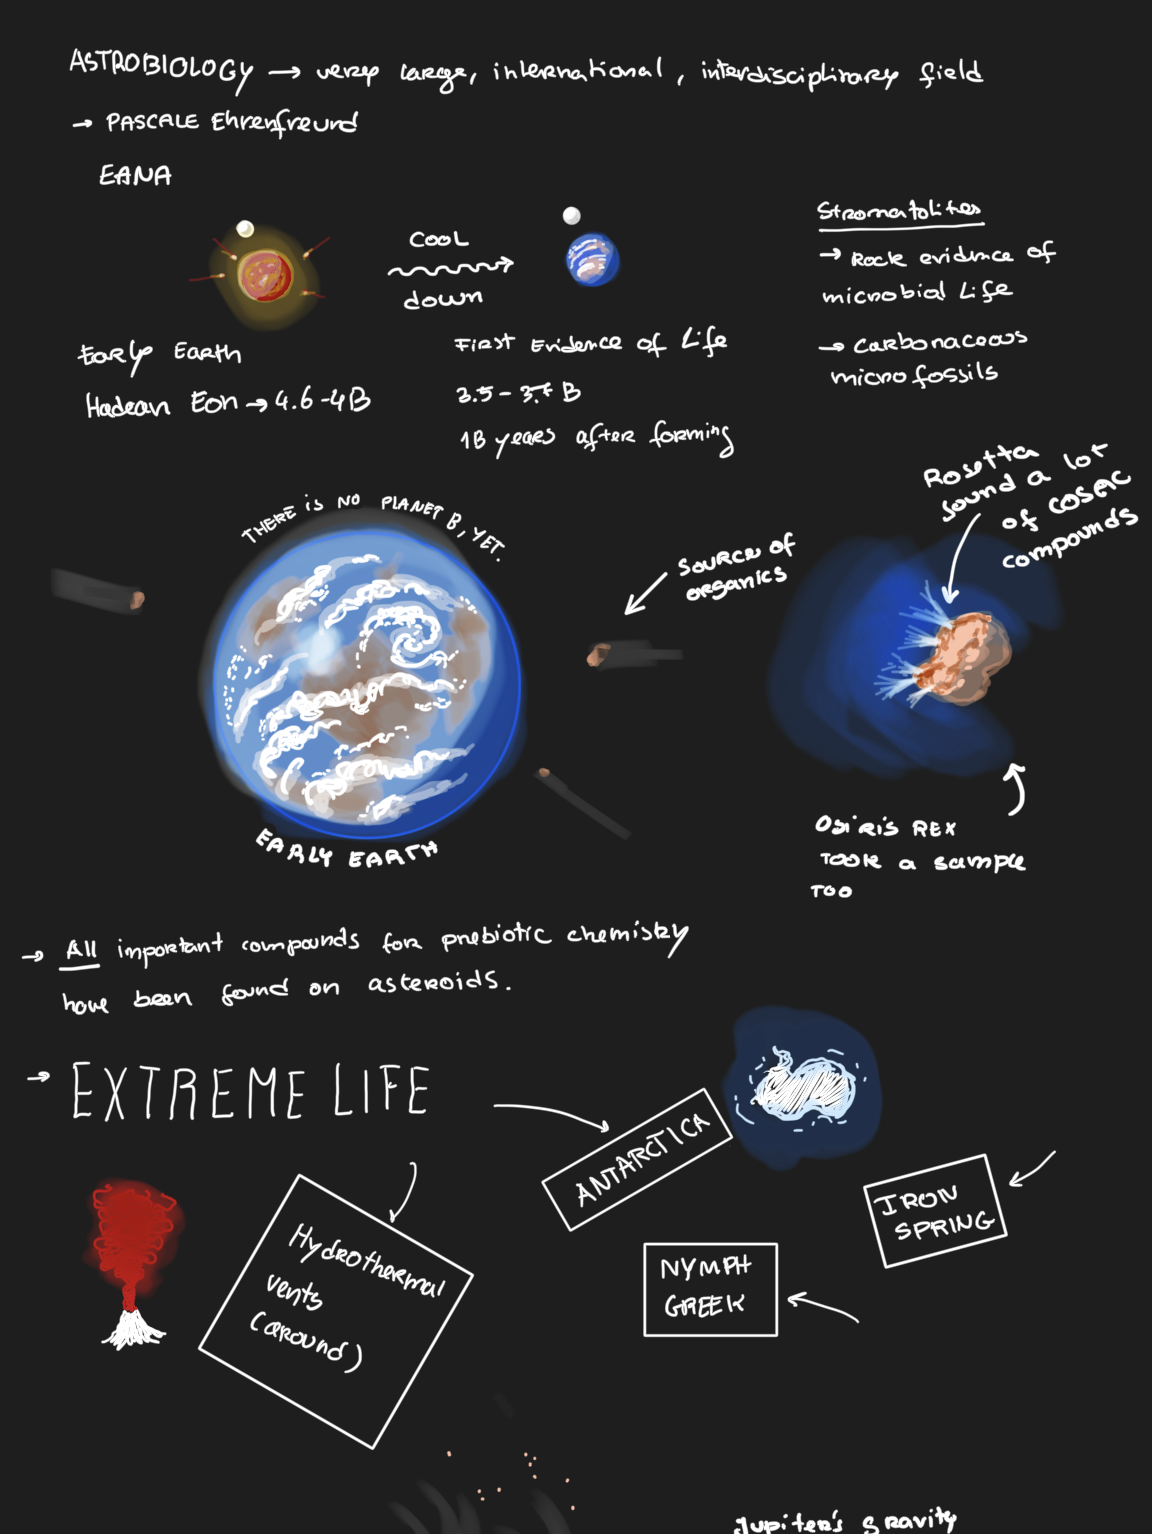 ASTROBIOLOGY → very large, international, interdisciplinary field
→ PASCALE Ehrenfreund
EANA
COOL
down
Early Earth
Hadean Eon → 4.6-4B
First Evidence of Life
3.5 - B
1B years after forming
Stromatolites
→ Rock evidence of
microbial Life
→ Carbonaceous
microfossils
THERE is NO PLANET B, YET.
EARLY EARTH
Source of
organics
Rosetta
found a lot
of COSAC
compounds
Osiris REX
TOOK a sample
TOO
→ All important compounds for prebiotic chemistry
have been found on asteroids.
→ EXTREME LIFE
ANTARCTICA
IRON
SPRING
Hydrothermal
vents
(around)
NYMPH
GREEK
Jupiter's gravity